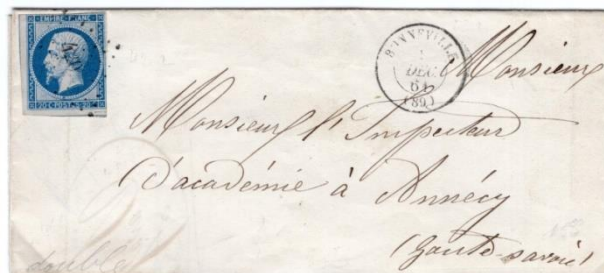 EMPIRE FRANC.
20 C. POSTES 20 C.
BONNEVILLE
1
DEC.
61
(89)
Monsieur
Monsieur l'Inspecteur
d'académie à Annécy
(haute-savoie)
double